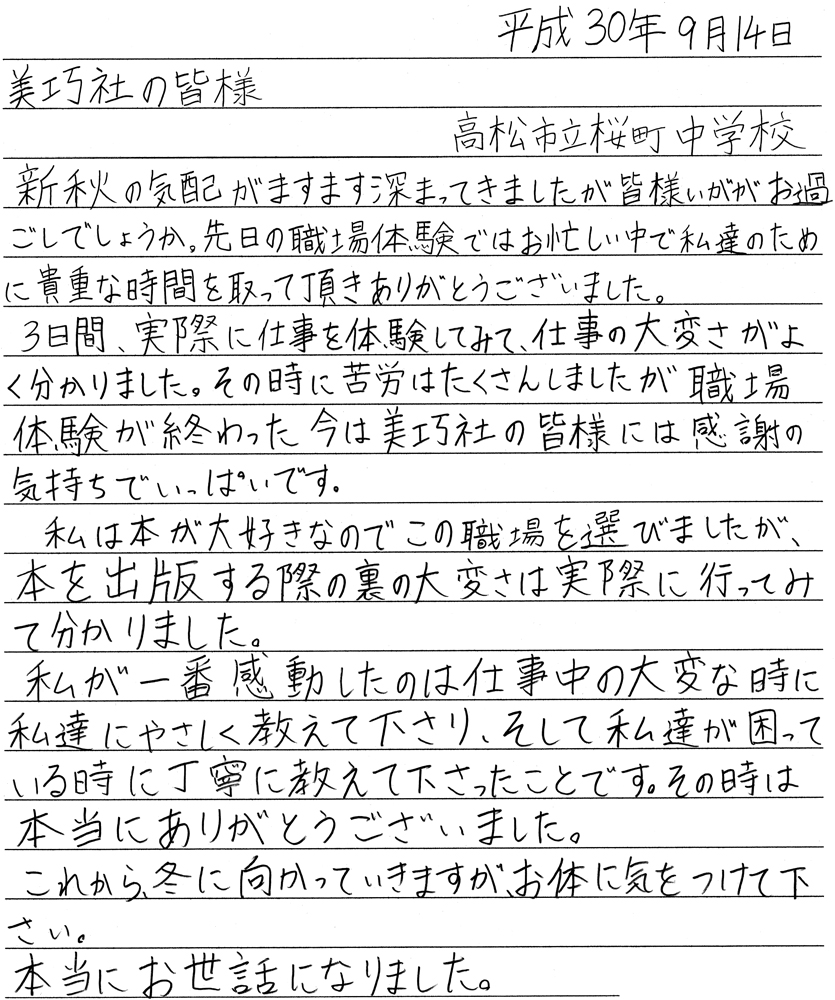 平成30年9月14日
美巧社の皆様
高松市立桜町中学校
新秋の気配がますます深まってきましたが皆様いががお過
ごしでしょうか。先日の職場体験ではお忙しい中で私達のため
に貴重な時間を取って頂きありがとうございました。
3日間、実際に仕事を体験してみて、仕事の大変さがよ
く分かりました。その時に苦労はたくさんしましたが職場
体験が終わった今は美巧社の皆様には感謝の
気持ちでいっぱいです。
私は本が大好きなのでこの職場を選びましたが、
本を出版する際の裏の大変さは実際に行ってみ
て分かりました。
私が一番感動したのは仕事中の大変な時に
私達にやさしく教えて下さり、そして私達が困って
いる時に丁寧に教えて下さったことです。その時は
本当にありがとうございました。
これから、冬に向かっていきますが、お体に気をつけて下
さい。
本当にお世話になりました。